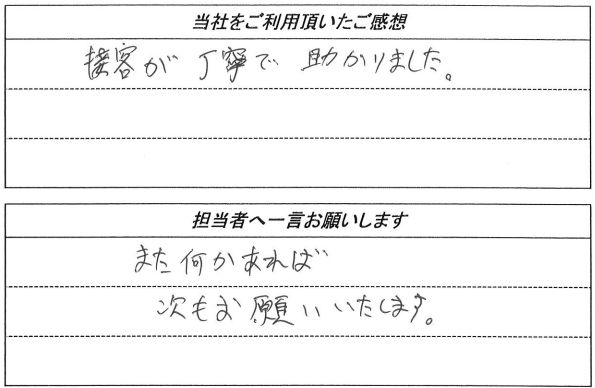 当社をご利用頂いたご感想
接客が丁寧で助かりました。
担当者へ一言お願いします
また何かあれば
次もお願いいたします。